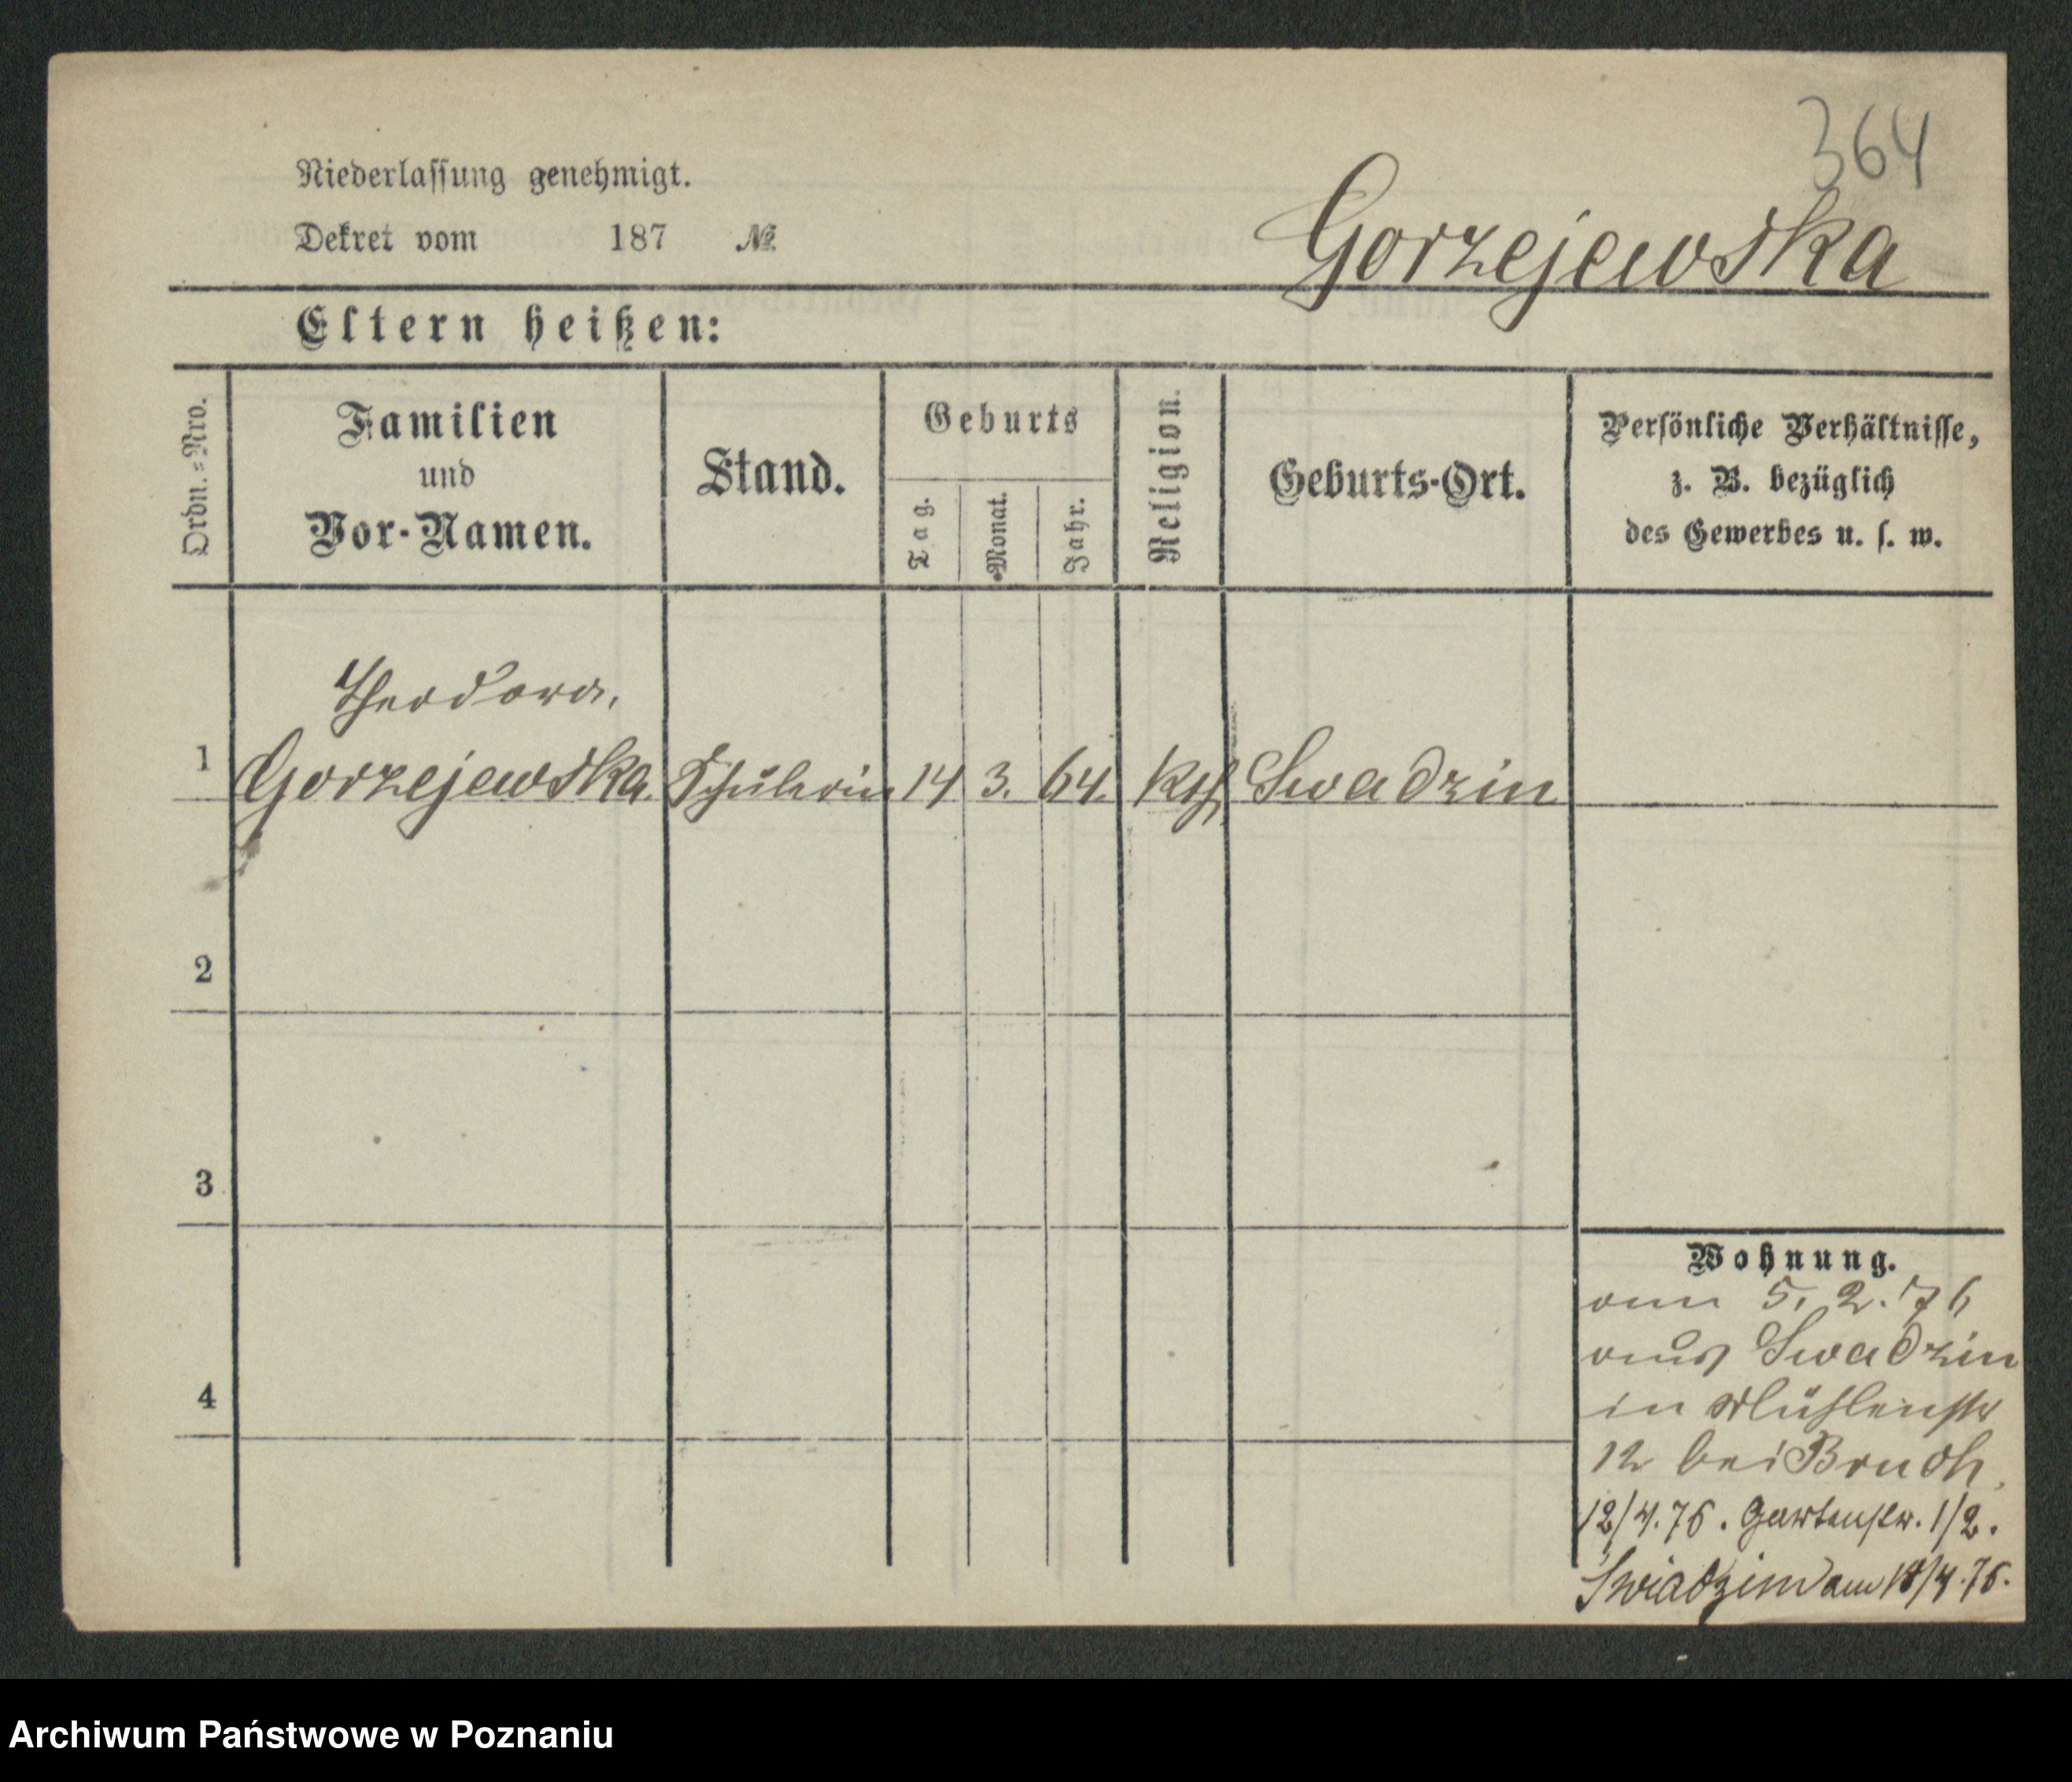 364
Niederlassung genehmigt.
Dekret vom 187 №
Gorzejewska
Eltern heißen:
Ordn.=Nro.
Familien
und
Vor-Namen.
Stand.
Geburts
Tag.
Monat.
Jahr.
Religion.
Geburts-Ort.
Persönliche Verhältnisse,
z. B. bezüglich
des Gewerbes u. s. w.
Theodora,
1 Gorzejewska Schülerin 14 3. 64. Kth Swadzin
2
3
4
Wohnung.
am 5. 2. 76
aus Swadzin
in Mühlenstr
12 bei
12/4.76. Gartenstr. 1/2.
am 18/4.76.
Archiwum Państwowe w Poznaniu